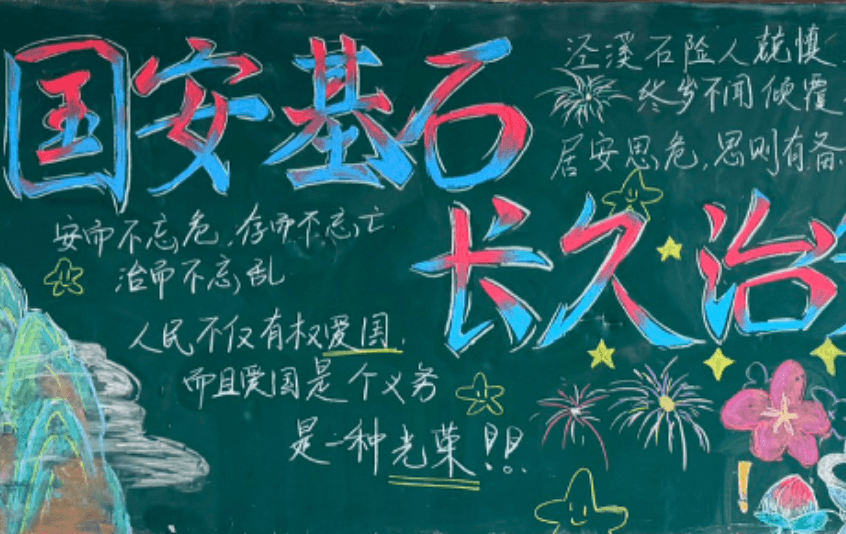 国安基石
长久治
泾溪石险人兢慎
终岁不闻倾覆
居安思危,思则有备
安而不忘危,存而不忘亡
治而不忘乱
人民不仅有权爱国,
而且爱国是个义务
是一种光荣!!